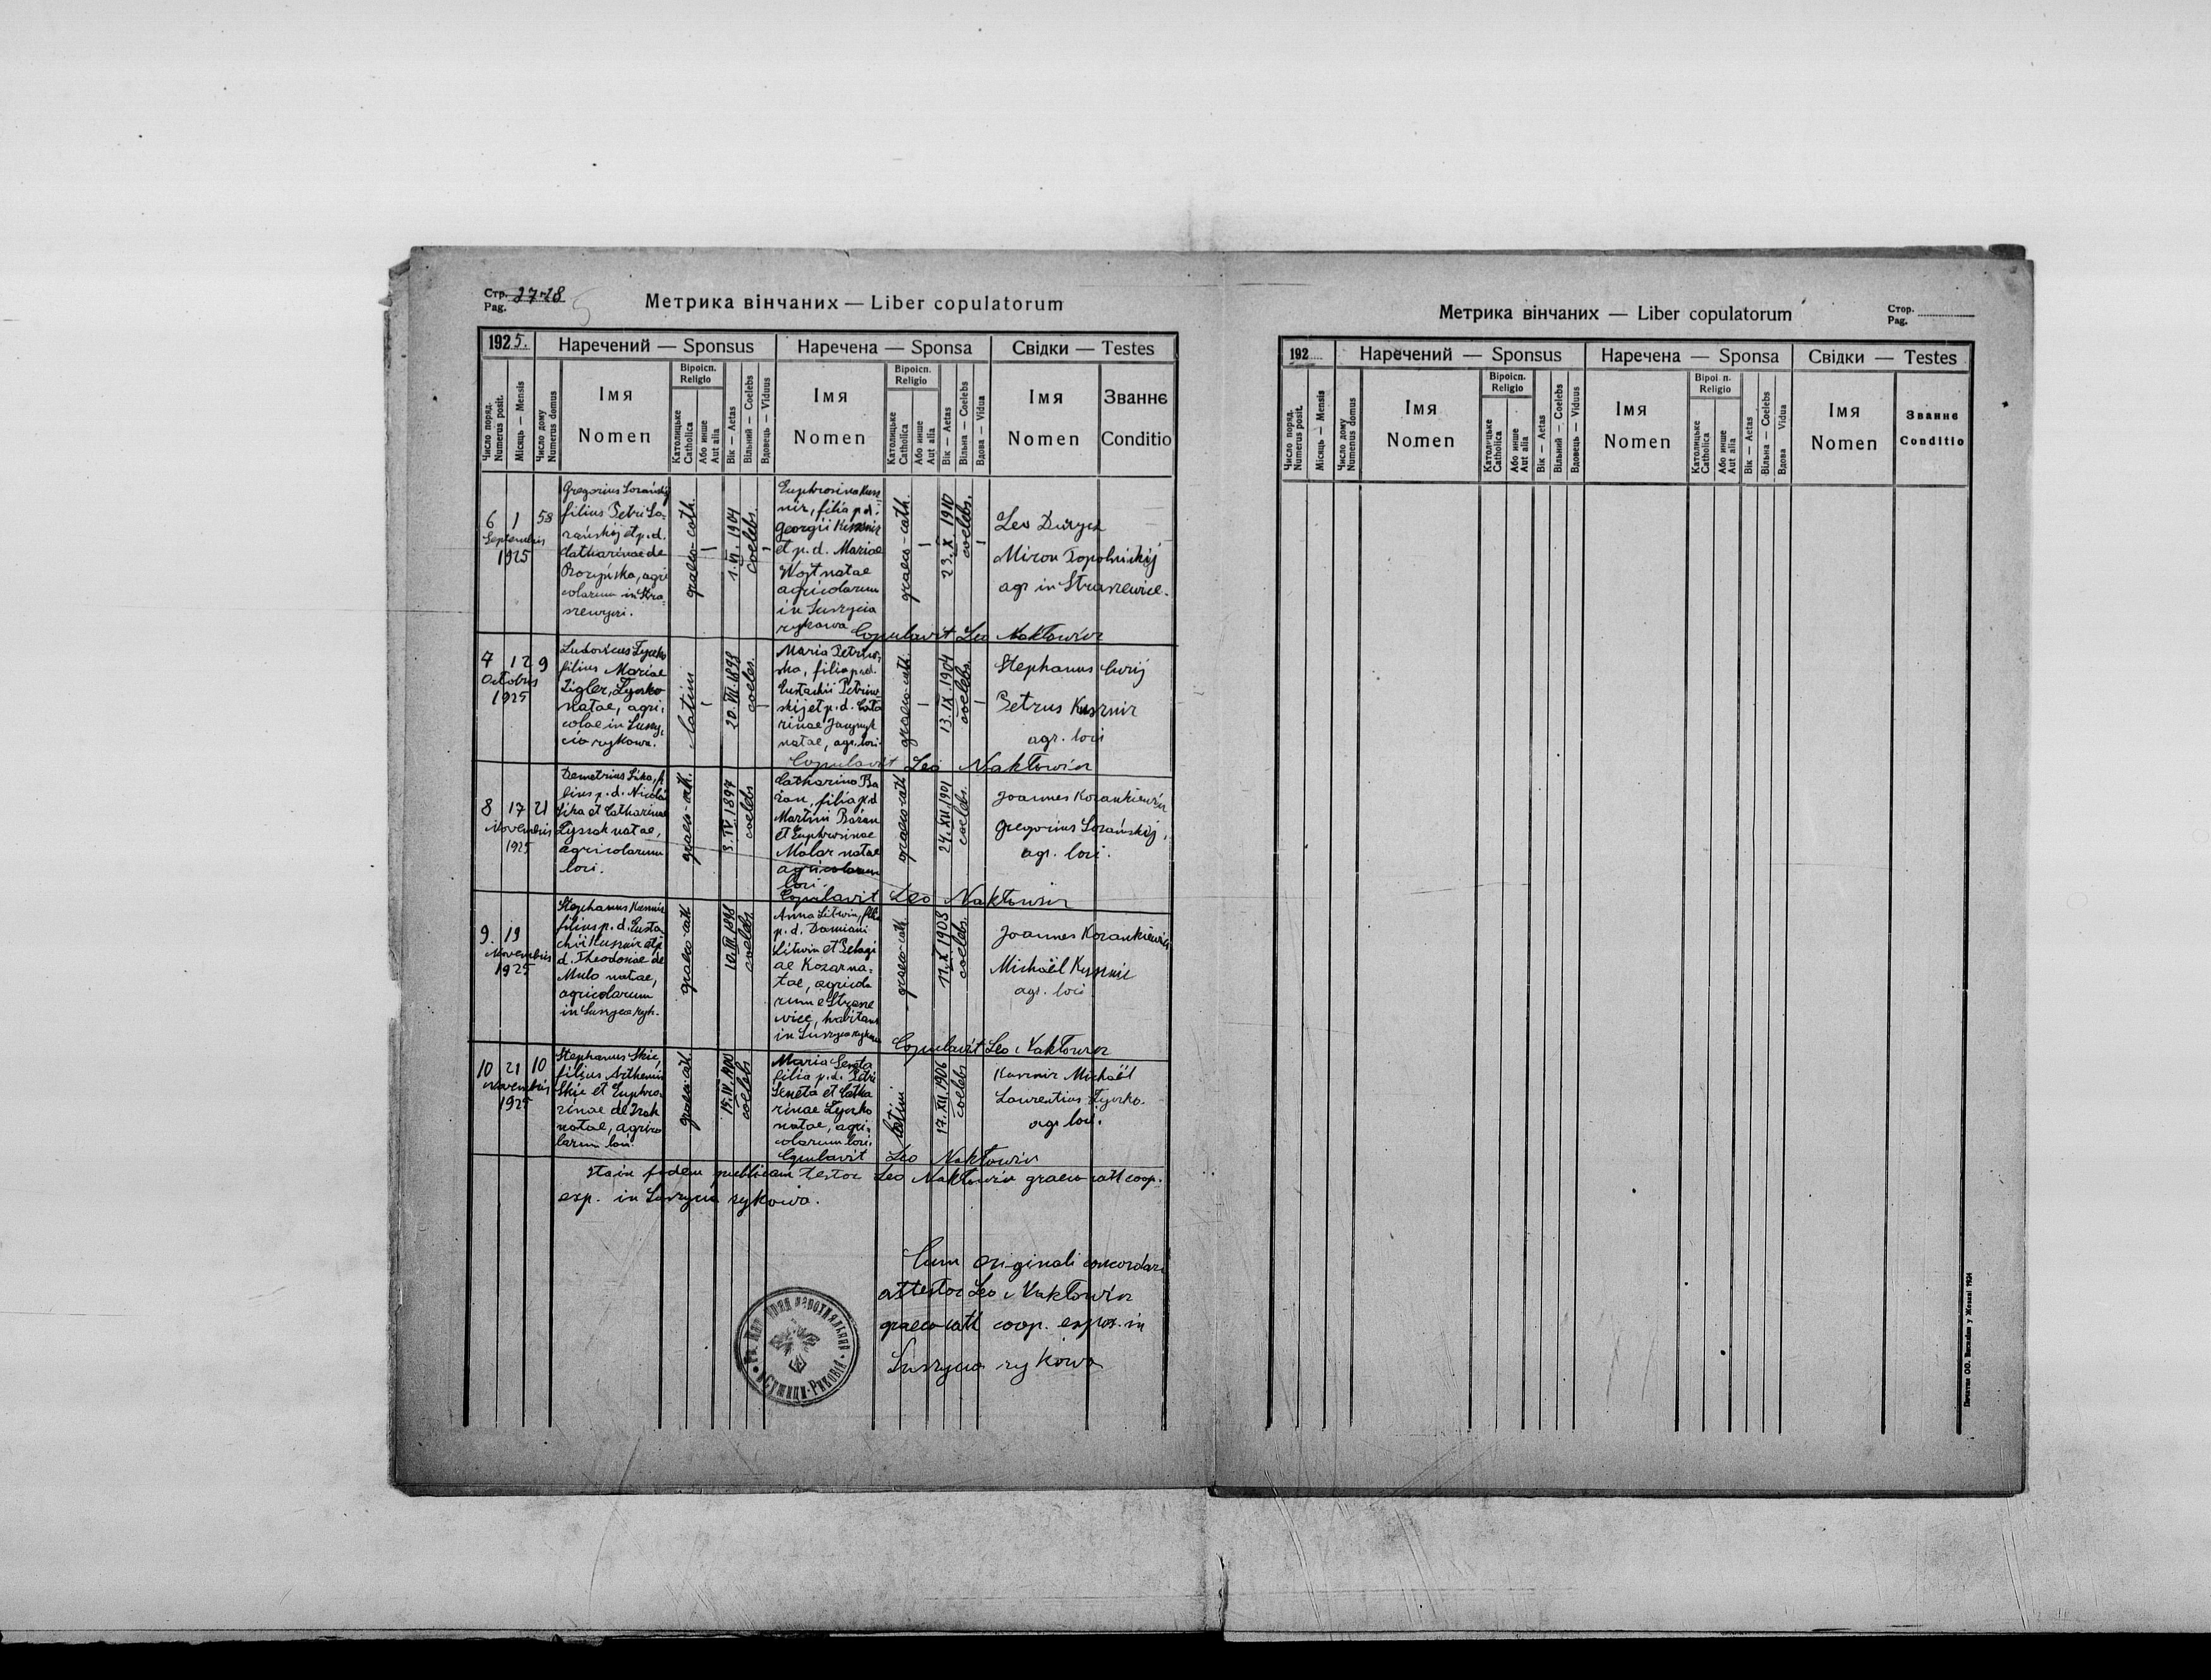 Стр. 27-28
Pag.
Метрика вінчаних — Liber copulatorum
1925.
Наречений — Sponsus
Наречена — Sponsa
Свідки — Testes
Число поряд.
Numerus posit.
Місяць — Mensis
Число дому
Numerus domus
Імя
Nomen
Віроісп.
Religio
Католицьке
Catholica
Або инше
Aut alia
Вік — Aetas
Вільний — Coelebs
Вдовець — Viduus
Імя
Nomen
Віроісп.
Religio
Католицьке
Catholica
Або инше
Aut alia
Вік — Aetas
Вільна — Coelebs
Вдова — Vidua
Імя
Nomen
Званнє
Conditio
6 1 58
Septembris
1925
Gregorius
filius Petri
et p. d.
Catharinae de
agri
colarum in Stra-
graeco-cath.
1.VI.1904
coelebs.
Euphrosina Kusz
nir, filia p. d.
Georgii Kusznir
et p. d. Mariae
Wojt natae
agricolarum
in Suszycia
rykowa
graeco-cath.
23.X.1910
coelebs.
Leo
Miron Topolnickij
agr in Straszewice.
Copulavit Leo Nakłowicz
7 12 9
Octobris
1925
Ludovicus Tyczko
filius Mariae
Zigler, Tyczko
natae, agri-
colae in Suszy-
cia rykowa.
latini
20.VII.1898
coelebs.
Maria Petryw-
ska, filia p. d.
Eustachii
skij et p. d. Cata
rinae
natae, agr. loci.
graeco-cath.
13.IX.1904
coelebs.
Stephanus
Petrus Kusznir
agr. loci
Copulavit Leo Nakłowicz
8 17 21
Novembris
1925
Demetrius Sika, fi
lius p. d. Nicolai
Sika et Catharinae
natae,
agricolarum
loci.
graeco-cath.
3.IV.1897
coelebs
Catharina Ba
ran, filia p. d.
Martini Baran
et Euphrosinae
Malar natae
agricolarum
loci.
graeco cath
24.XII.1901
coelebs.
Joannes Korankiewicz
Gregorius
agr. loci.
Copulavit Leo Nakłowicz
9. 19
Novembris
1925
Stephanus Kusznir
filius p. d. Eusta
chii Kusznir et p.
d. Theodosiae de
Mulo natae,
agricolarum
in Suszyca ryk.
graeco-cath
10.III.1898
coelebs
Anna Litwin, filia
p. d. Damiani
Litwin et Pelagi
ae Kozar na-
tae, agricola
rum e Strasze
wice, habitans
in Suszyca rykowa
graeco-cath.
11.X.1908
coelebs.
Joannes Korankiewicz
Michaël Kusznir
agr. loci
Copulavit Leo Nakłowicz
10 21 10
Novembris
1925
Stephanus Skic,
filius Arthemii
Skic et Euphro-
zinae de
natae, agrico
larum loci.
graeco cath.
15.IV.1900
coelebs
Maria Seneta
filia p. d. Petri
Seneta et Catha
rinae Tyczko
natae, agri-
colarum loci.
latini
17.XII.1906
coelebs
Kusznir Michaël
Laurentius Tyczko.
agr loci.
Copulavit Leo Nakłowicz
Ita in fidem publicam testor Leo Nakłowicz graeco cath coop.
exp. in Suszycia rykowa.
Cum originali concordare
attestor Leo Nakłowicz
graeco cath coop. expos. in
Suszycia rykowa
Метрика вінчаних — Liber copulatorum
Стор.
Pag.
192
Наречений — Sponsus
Наречена — Sponsa
Свідки — Testes
Число поряд.
Numerus posit.
Місяць — Mensis
Число дому
Numenus domus
Імя
Nomen
Віроісп.
Religio
Католицьке
Catholica
Або инше
Aut alia
Вік — Aetas
Вільний — Coelebs
Вдовець — Viduus
Імя
Nomen
Віроі п.
Religio
Католицьке
Catholica
Або инше
Aut alia
Вік — Aetas
Вільна — Coelebs
Вдова Vidua
Імя
Nomen
Званнє
Conditio
Печатня ОО. Василіян у Жовкві 1924